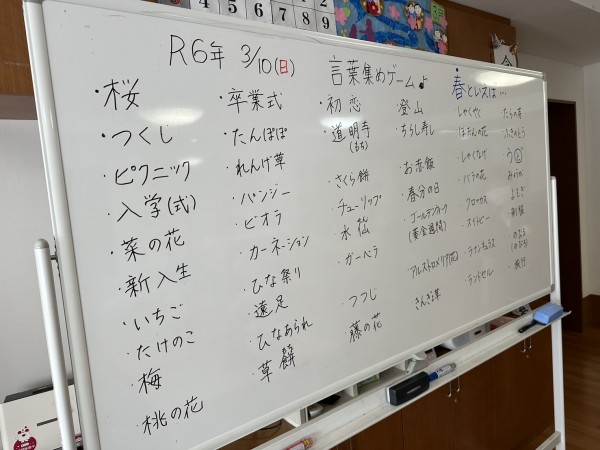 R6年 3/10(日) 言葉集めゲーム♪ 春といえば…
・桜
・つくし
・ピクニック
・入学(式)
・菜の花
・新入生
・いちご
・たけのこ
・梅
・桃の花
・卒業式
・たんぽぽ
・れんげ草
・パンジー
・ビオラ
・カーネーション
・ひな祭り
・遠足
・ひなあられ
・草餅
・初恋
・道明寺
(もち)
・さくら餅
・チューリップ
・水仙
・ガーベラ
・つつじ
・藤の花
・登山
・ちらし寿し
・お赤飯
・春分の日
・ゴールデンウィーク
(黄金週間)
・アルストロメリア(花)
・きんぎょ草
・しゃくやく
・ぼたんの花
・しゃくなげ
・バラの花
・クロッカス
・スイトピー
・ラナンキュラス
・ランドセル
・たらの芽
・ふきのとう
・うど
・みょうが
・よもぎ
・のびる
(のびろ)
4 5 6 7 8 9